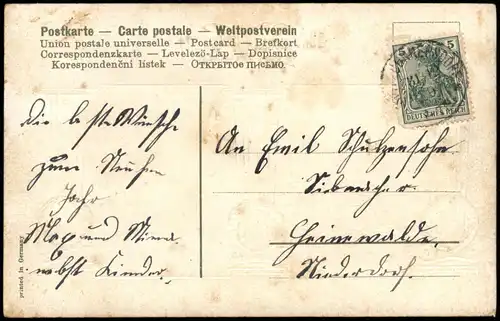 Postkarte — Carte postale — Weltpostverein
Union postale universelle — Postcard — Brefkort
Correspondenzkarte — Levelező-Lap — Dopisnice
Korespondenční lístek — Открытое письмо.
5 5
DEUTSCHES REICH
Die beste Wünsche
zum Neuen
Jahr
Max und Minna
nebst Kinder.
An Emil Schulzensohn
Hainewalde.
Niederdorf.
printed in Germany